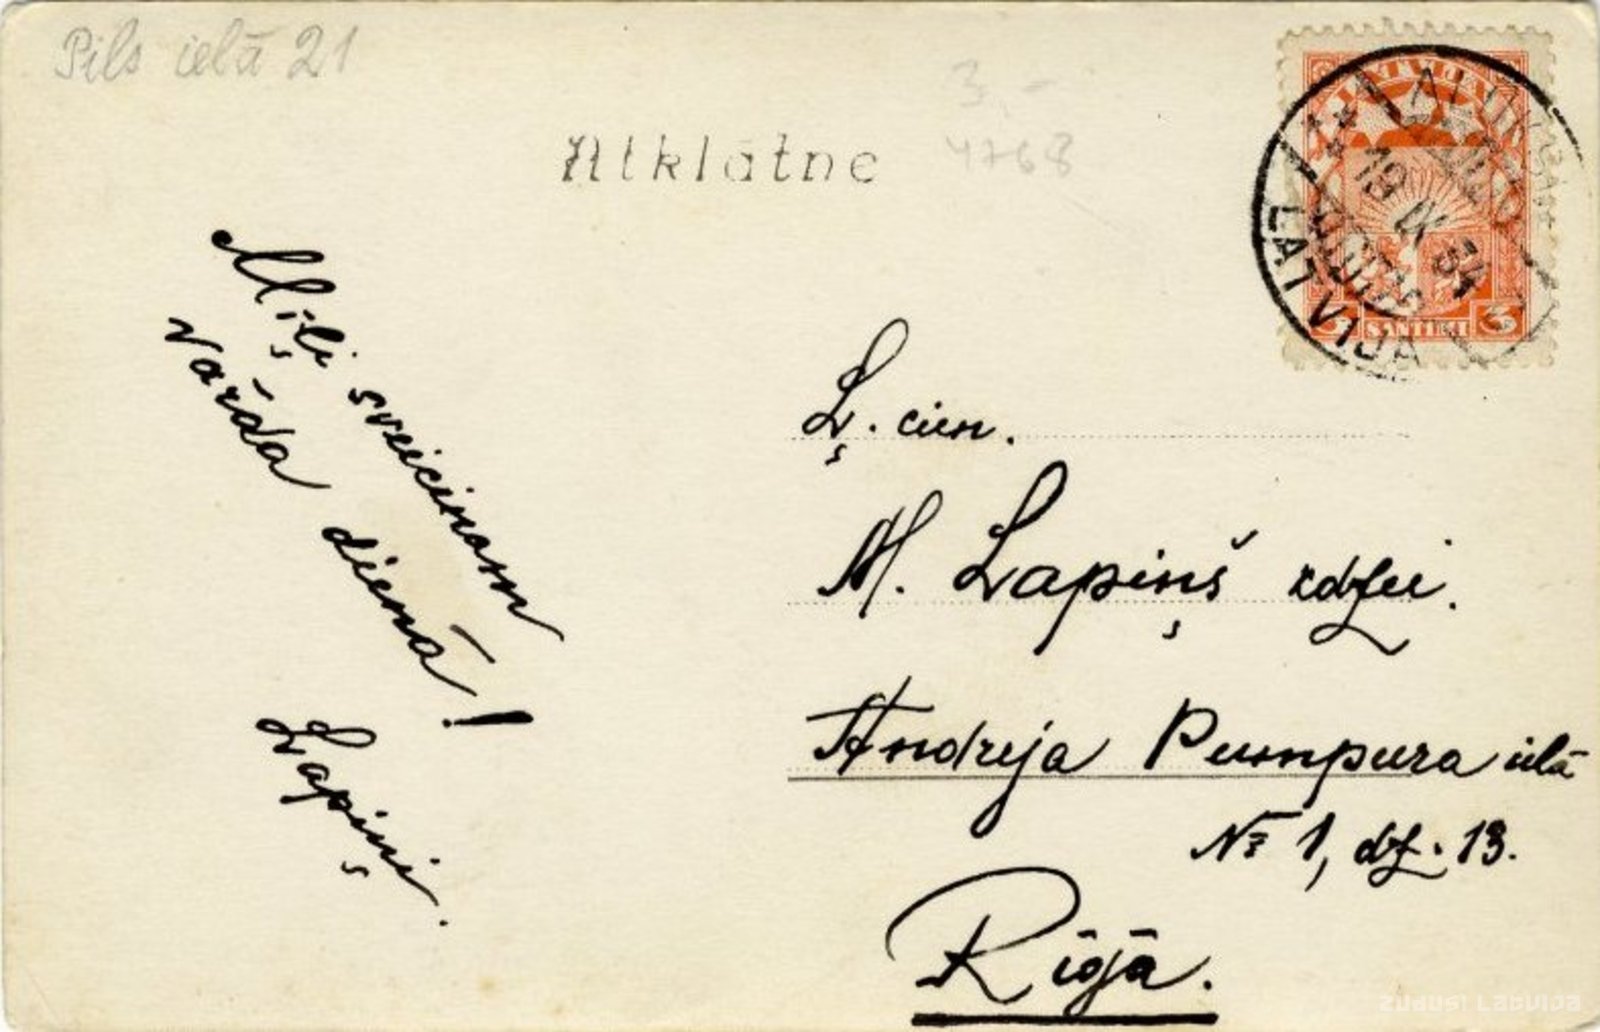 Pils ielā 21
3,-
4768
Atklātne
LATVIJA
19 IX 34
3 SANTIMI 3
Mīļi sveicinam
vārda dienā!
Lapiņi.
Ļ. cien.
M. Lapiņš kdzei.
Andreja Pumpura ielā
№ 1, dz. 13.
Rīgā.
zudusi Latvija